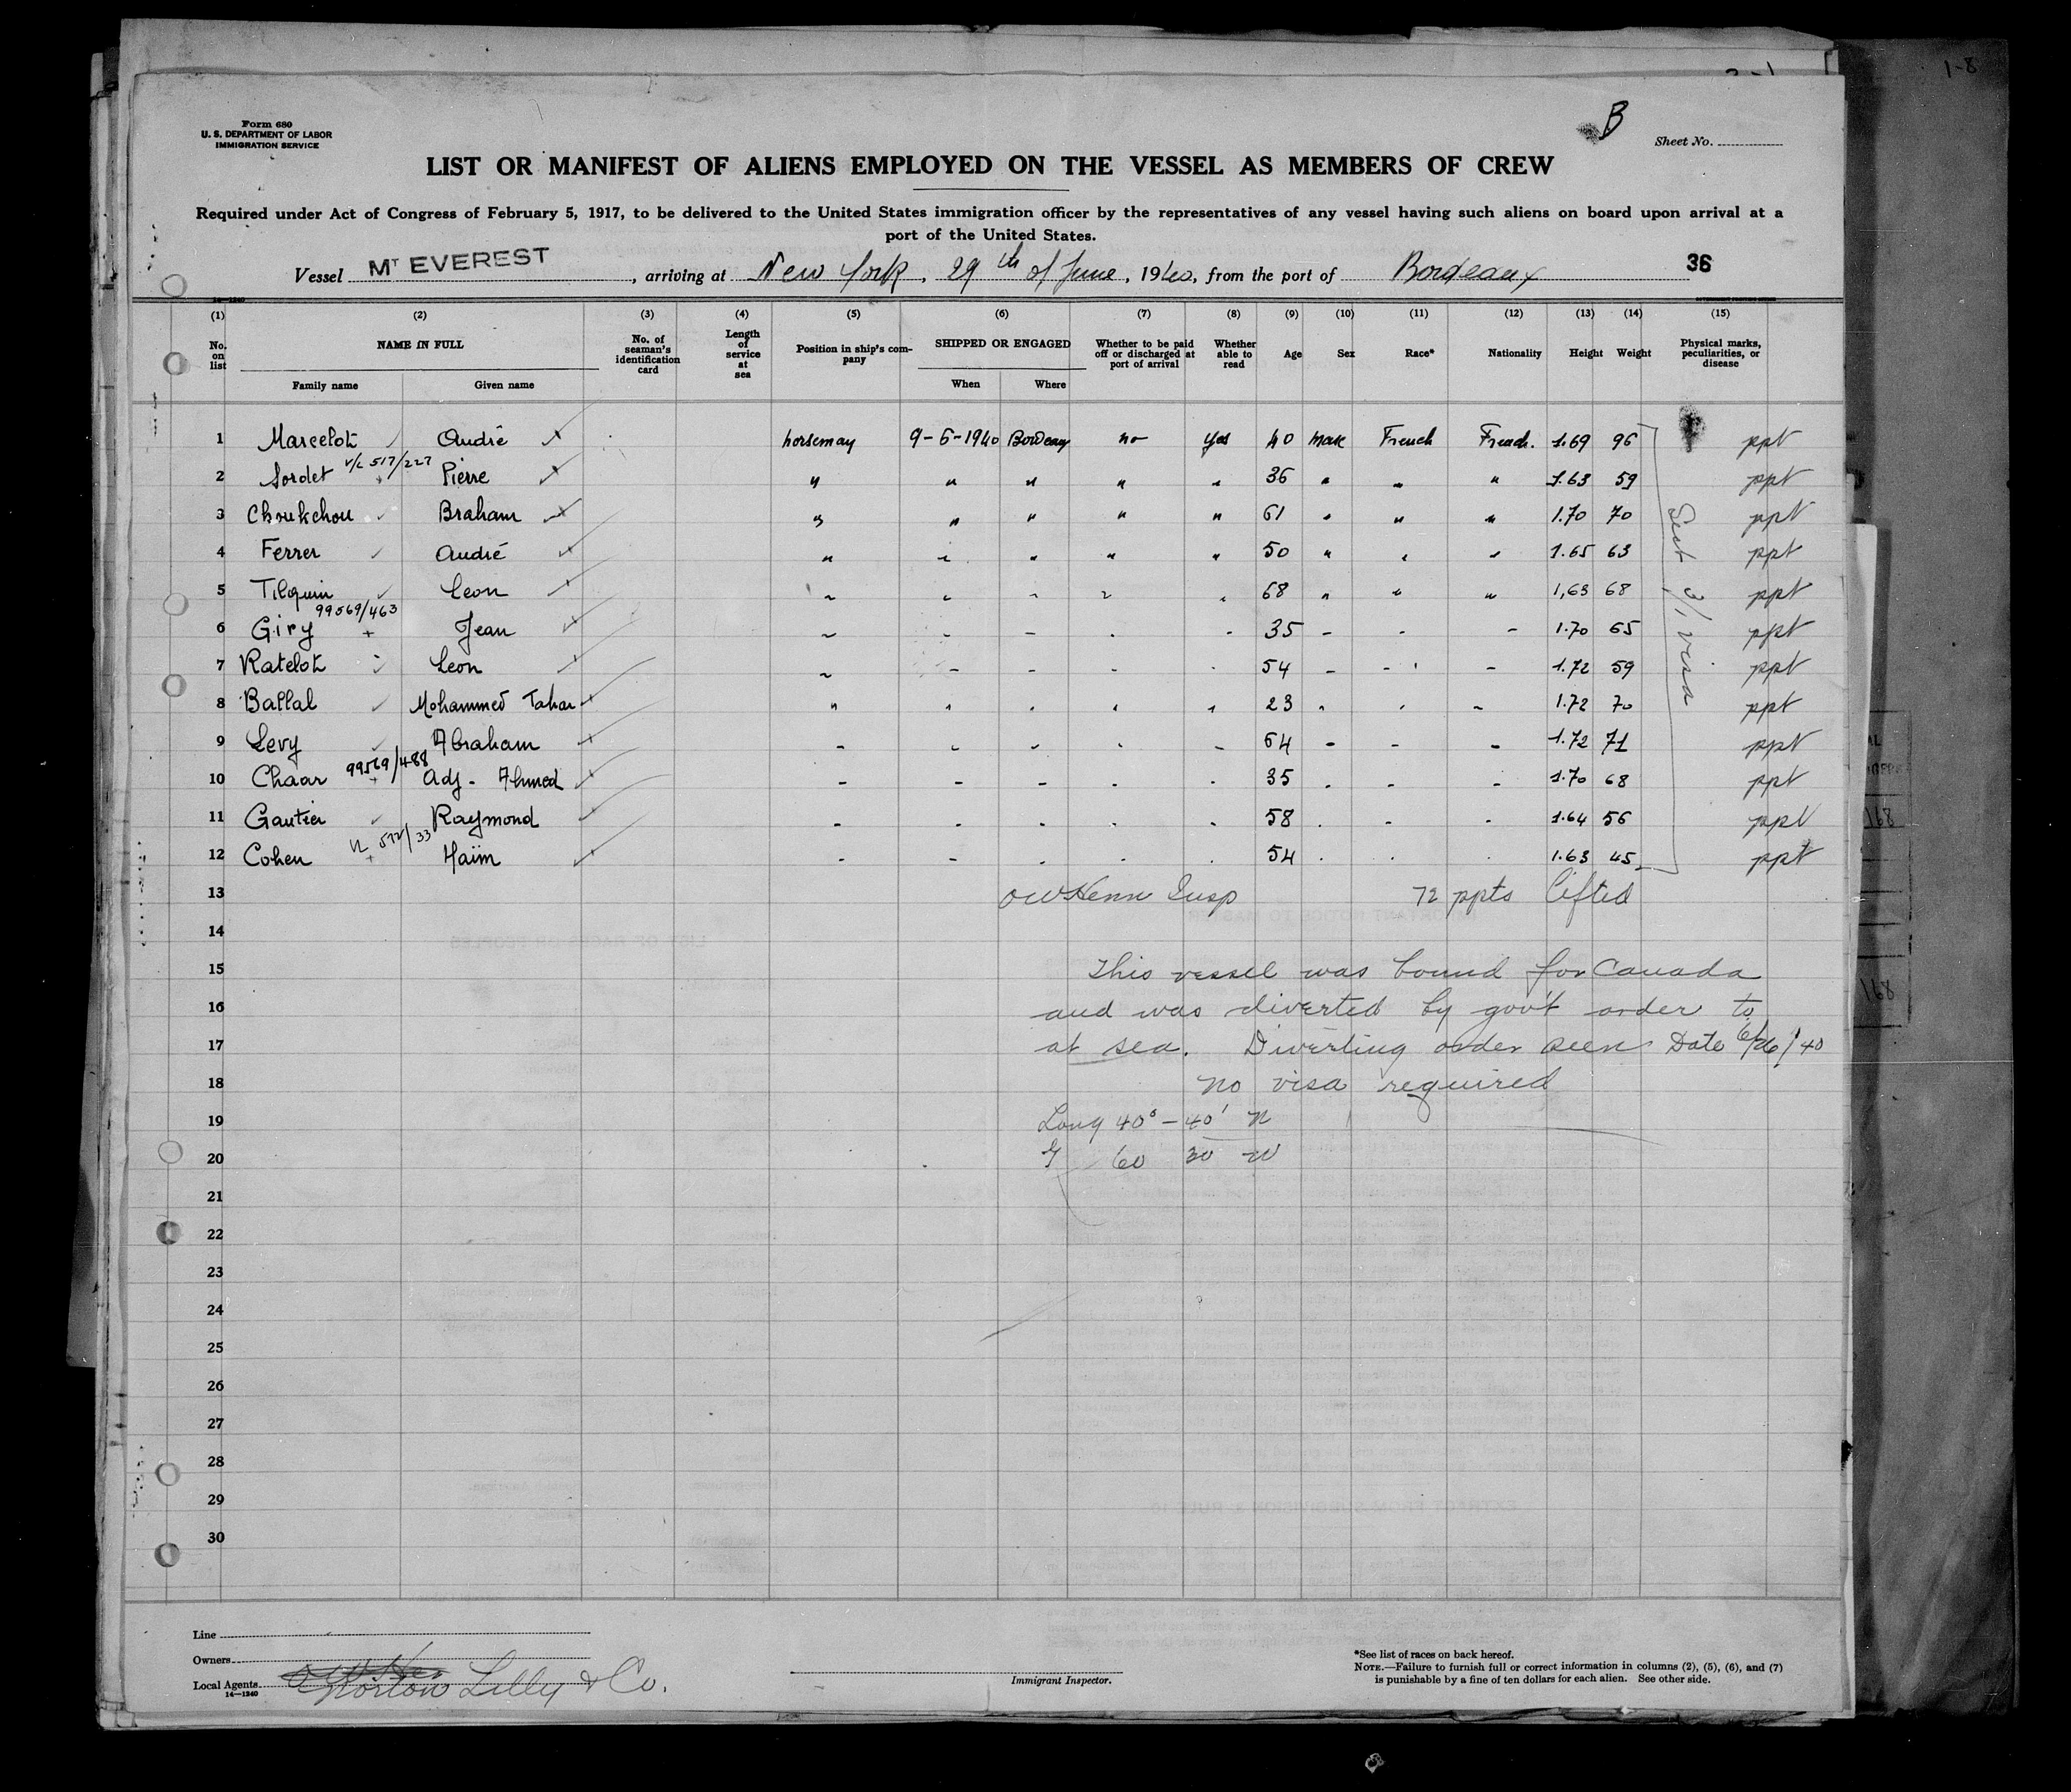 1-8
B
Form 680
U. S. DEPARTMENT OF LABOR
IMMIGRATION SERVICE
Sheet No.
LIST OR MANIFEST OF ALIENS EMPLOYED ON THE VESSEL AS MEMBERS OF CREW
Required under Act of Congress of February 5, 1917, to be delivered to the United States immigration officer by the representatives of any vessel having such aliens on board upon arrival at a
port of the United States.
Vessel MT EVEREST, arriving at New York, 29th of June, 1940, from the port of Bordeaux 36
14—1240
(1) (2) (3) (4) (5) (6) (7) (8) (9) (10) (11) (12) (13) (14) (15)
No. on list NAME IN FULL No. of seaman's identification card Length of service at sea Position in ship's company SHIPPED OR ENGAGED Whether to be paid off or discharged at port of arrival Whether able to read Age Sex Race* Nationality Height Weight Physical marks, peculiarities, or disease
Family name Given name When Where
1 Marcelot André horseman 9-6-1940 Bordeaux no yes 40 male French French. 1.69 96 ppt
v/c 517/227
2 Sordet Pierre " " " " " 36 " " " 1.63 59 ppt
3 Choukchou Braham " " " " " 61 " " " 1.70 70 ppt
4 Ferrer André " " " " " 50 " " " 1.65 63 ppt
5 Tilquin Leon " " " " " 68 " " " 1,63 68 ppt
99569/463
6 Giry Jean 35 1.70 65 ppt
7 Ratelot Leon 54 1.72 59 ppt
8 Ballal Mohammed Tahar " " " " " 23 " " " 1.72 70 ppt
9 Levy Abraham 64 1.72 71 ppt
99569/488
10 Chaar Adj - Ahmed 35 1.70 68 ppt
11 Gautier Raymond 58 1.64 56 ppt
12 Cohen Haïm 54 1.63 45 ppt
Sect 3/1 visa
13 OW Henn Insp 72 ppts lifted
14
15 This vessel was bound for Canada
16 and was diverted by gov't order to
17 at sea. Diverting order seen Date 6/26/40
18 no visa required
19 Long 40° - 40' N
20 60 30 W
21
22
23
24
25
26
27
28
29
30
Line
Owners
Local Agents Norton Lilly & Co.
14—1240
Immigrant Inspector.
*See list of races on back hereof.
NOTE.—Failure to furnish full or correct information in columns (2), (5), (6), and (7)
is punishable by a fine of ten dollars for each alien. See other side.